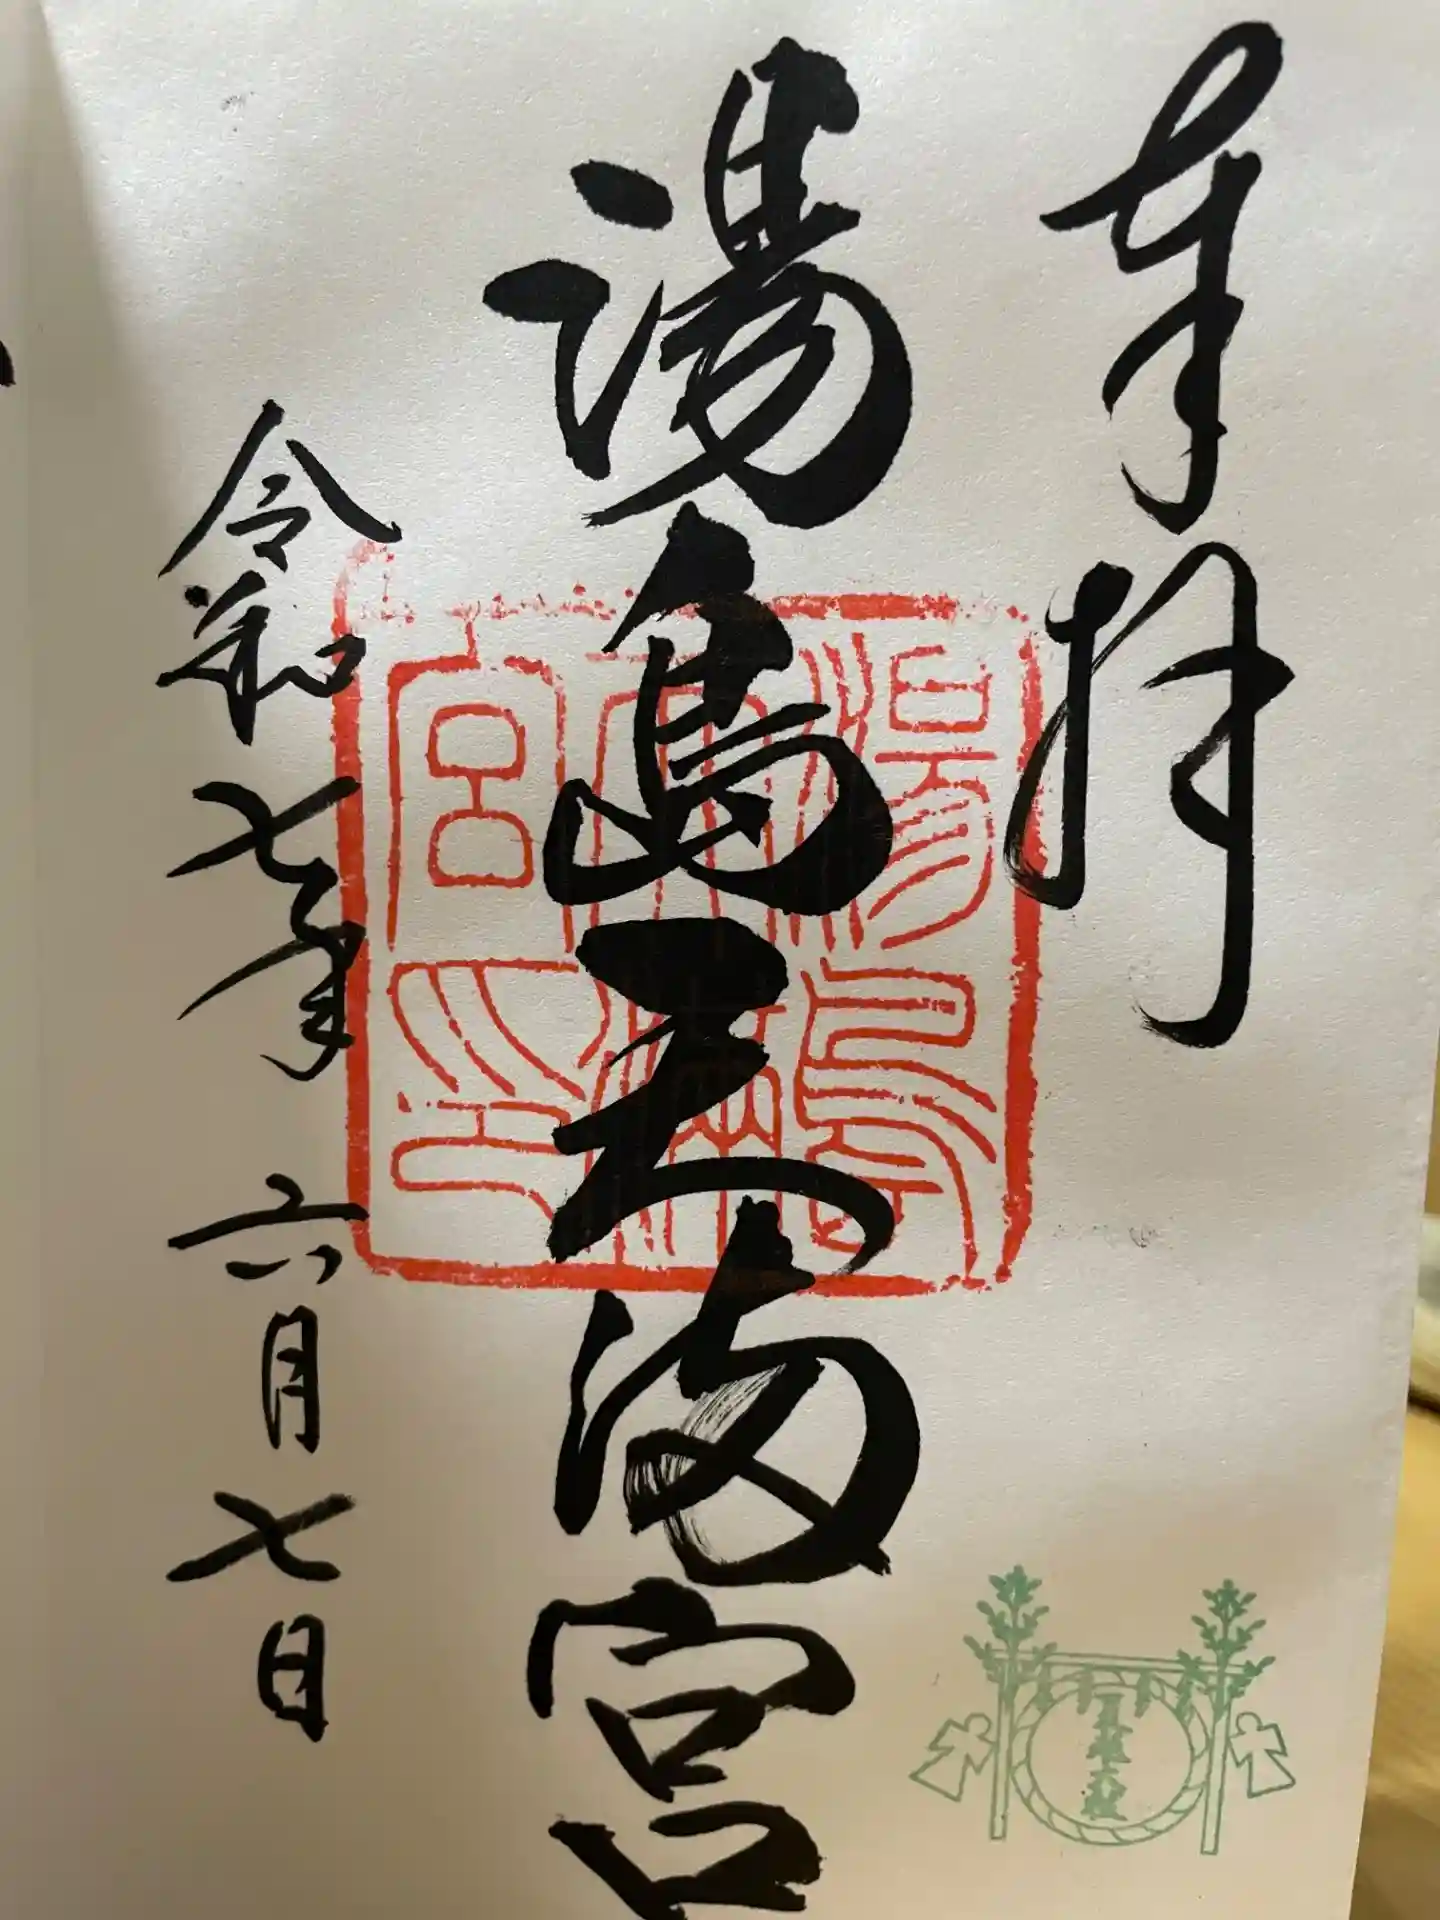 奉拝
湯島天満宮
令和七年 六月七日
湯島天満宮印
夏越大祓